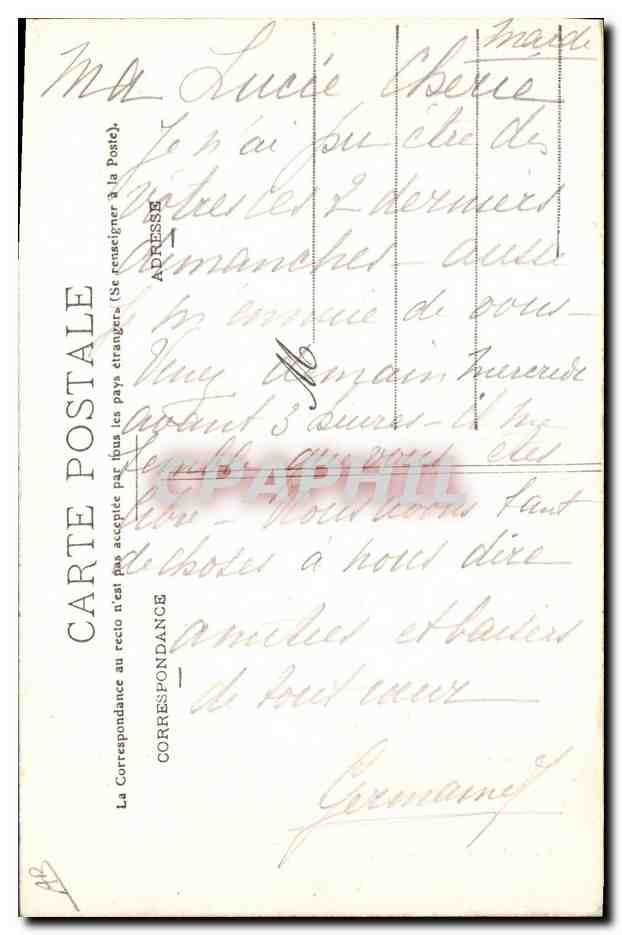 Mardi
Ma Lucie Chérie
Je n'ai pu être des
vôtres ces 2 derniers
dimanches - aussi
je m'ennuie de vous -
Venez demain Mercredi
avant 3 heures - il me
semble que vous êtes
libre - Nous avons tant
de choses à nous dire
amitiés et baisers
de tout coeur
Germaine
CARTE POSTALE
La Correspondance au recto n'est pas acceptée par tous les pays étrangers (Se renseigner à la Poste).
CORRESPONDANCE
ADRESSE
M
CPAPHIL
AB